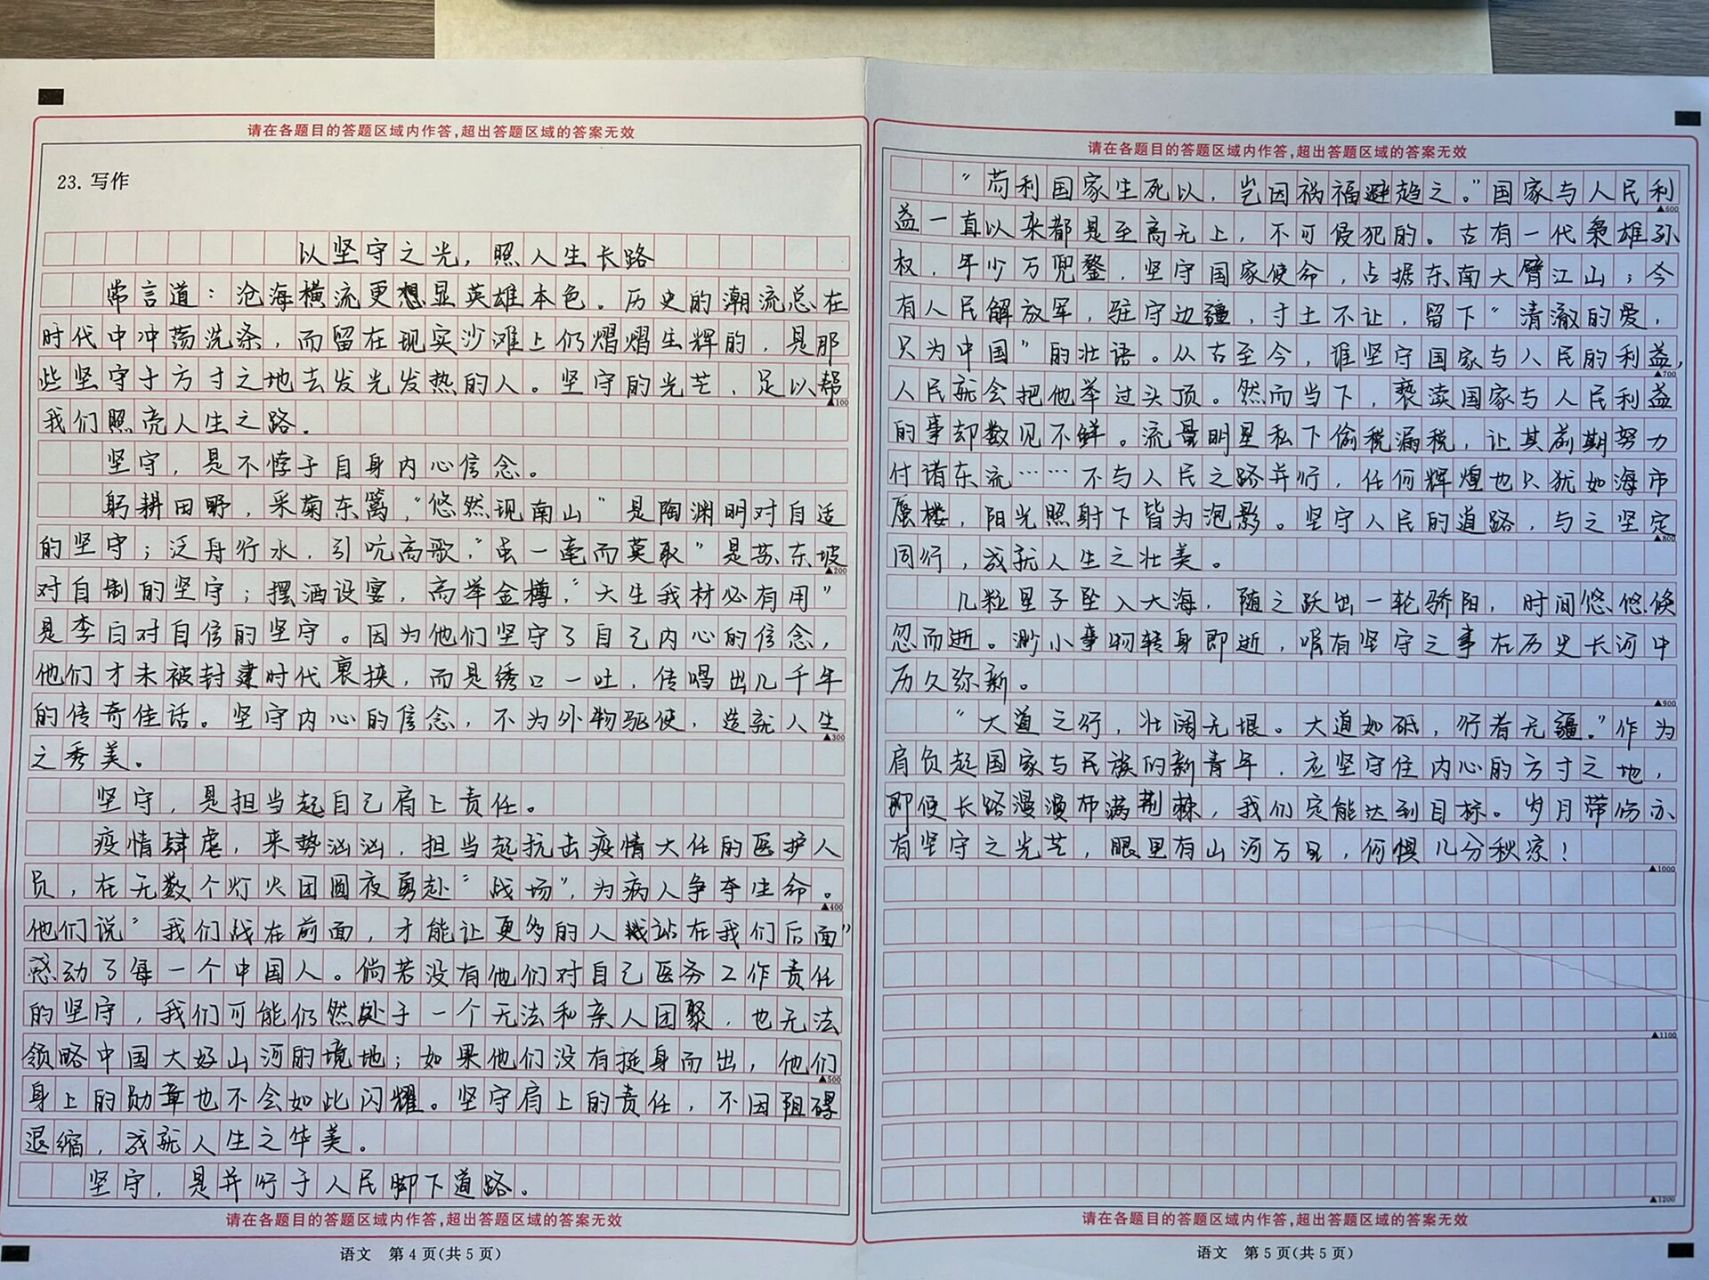 请在各题目的答题区域内作答,超出答题区域的答案无效
23. 写作
以坚守之光，照人生长路
常言道：沧海横流更想显英雄本色。历史的潮流总在
时代中冲荡洗涤，而留在现实沙滩上仍熠熠生辉的，是那
些坚守于方寸之地去发光发热的人。坚守的光芒，足以帮
▲100
我们照亮人生之路。
坚守，是不悖于自身内心信念。
躬耕田野，采菊东篱，“悠然现南山”是陶渊明对自适
的坚守；泛舟行水，引吭高歌，“虽一毫而莫取”是苏东坡
▲200
对自制的坚守；摆酒设宴，高举金樽，“天生我材必有用”
是李白对自信的坚守。因为他们坚守了自己内心的信念，
他们才未被封建时代裹挟，而是绣口一吐，传唱出几千年
的传奇佳话。坚守内心的信念，不为外物驱使，造就人生
▲300
之秀美。
坚守，是担当起自己肩上责任。
疫情肆虐，来势汹汹，担当起抗击疫情大任的医护人
员，在无数个灯火团圆夜勇赴“战场”，为病人争夺生命。
▲400
他们说“我们战在前面，才能让更多的人站在我们后面”
感动了每一个中国人。倘若没有他们对自己医务工作责任
的坚守，我们可能仍然处于一个无法和亲人团聚，也无法
领略中国大好山河的境地；如果他们没有挺身而出，他们
▲500
身上的勋章也不会如此闪耀。坚守肩上的责任，不因阻碍
退缩，成就人生之华美。
坚守，是并行于人民脚下道路。
请在各题目的答题区域内作答,超出答题区域的答案无效
语文 第4页(共5页)
请在各题目的答题区域内作答,超出答题区域的答案无效
“苟利国家生死以，岂因祸福避趋之。”国家与人民利
▲600
益一直以来都是至高无上，不可侵犯的。古有一代枭雄孙
权，年少万兜鍪，坚守国家使命，占据东南大臂江山；今
有人民解放军，驻守边疆，寸土不让，留下“清澈的爱，
只为中国”的壮语。从古至今，谁坚守国家与人民的利益，
▲700
人民就会把他举过头顶。然而当下，亵渎国家与人民利益
的事却数见不鲜。流量明星私下偷税漏税，让其前期努力
付诸东流……不与人民之路并行，任何辉煌也只犹如海市
蜃楼，阳光照射下皆为泡影。坚守人民的道路，与之坚定
▲800
同行，成就人生之壮美。
几粒星子坠入大海，随之跃出一轮骄阳，时间悠悠倏
忽而逝。渺小事物转身即逝，唯有坚守之事在历史长河中
历久弥新。
▲900
“大道之行，壮阔无垠。大道如砥，行者无疆。”作为
肩负起国家与民族的新青年，应坚守住内心的方寸之地，
即便长路漫漫布满荆棘，我们定能达到目标。岁月带伤亦
有坚守之光芒，眼里有山河万里，何惧几分秋凉！
▲1000
▲1100
▲1200
请在各题目的答题区域内作答,超出答题区域的答案无效
语文 第5页(共5页)